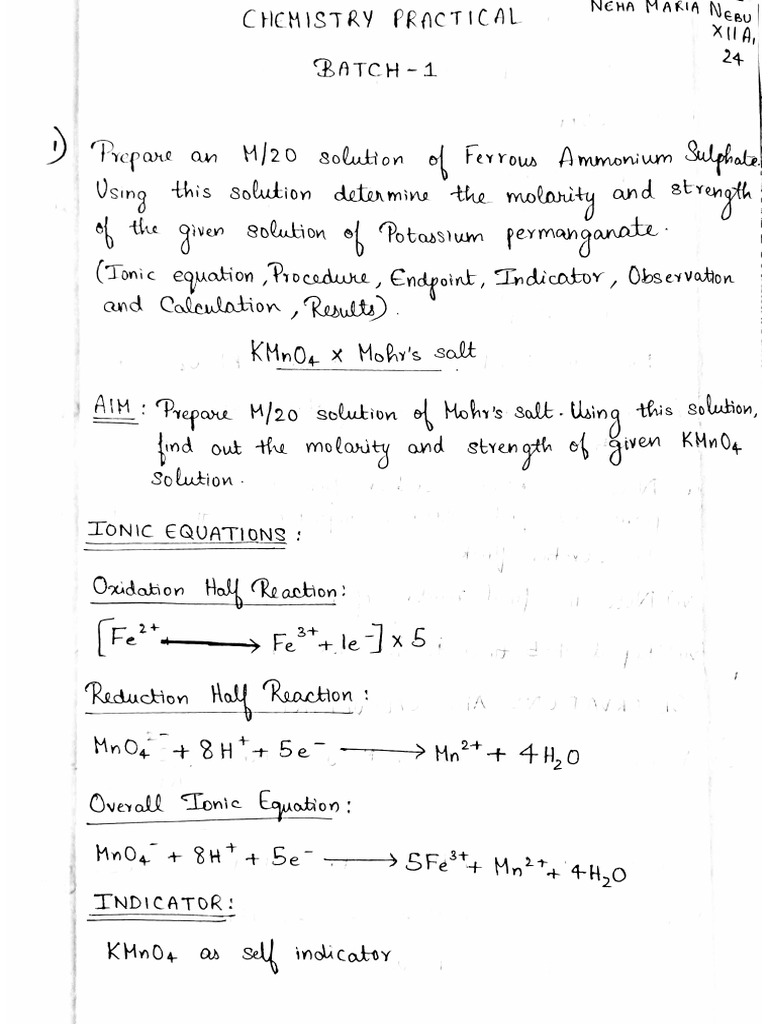 CHEMISTRY PRACTICAL
NEHA MARIA NEBU
XII A,
24
BATCH - 1
1) Prepare an M/20 solution of Ferrous Ammonium Sulphate.
Using this solution determine the molarity and strength
of the given solution of Potassium permanganate.
(Ionic equation, Procedure, Endpoint, Indicator, Observation
and Calculation, Results).
KMnO₄ x Mohr's salt
AIM: Prepare M/20 solution of Mohr's salt. Using this solution,
find out the molarity and strength of given KMnO₄
solution.
IONIC EQUATIONS:
Oxidation Half Reaction:
[Fe²⁺ ⟶ Fe³⁺ + 1e⁻] x 5
Reduction Half Reaction:
MnO₄⁻ + 8H⁺ + 5e⁻ ⟶ Mn²⁺ + 4H₂O
Overall Ionic Equation:
MnO₄⁻ + 8H⁺ + 5e⁻ ⟶ 5Fe³⁺ + Mn²⁺ + 4H₂O
INDICATOR:
KMnO₄ as self indicator